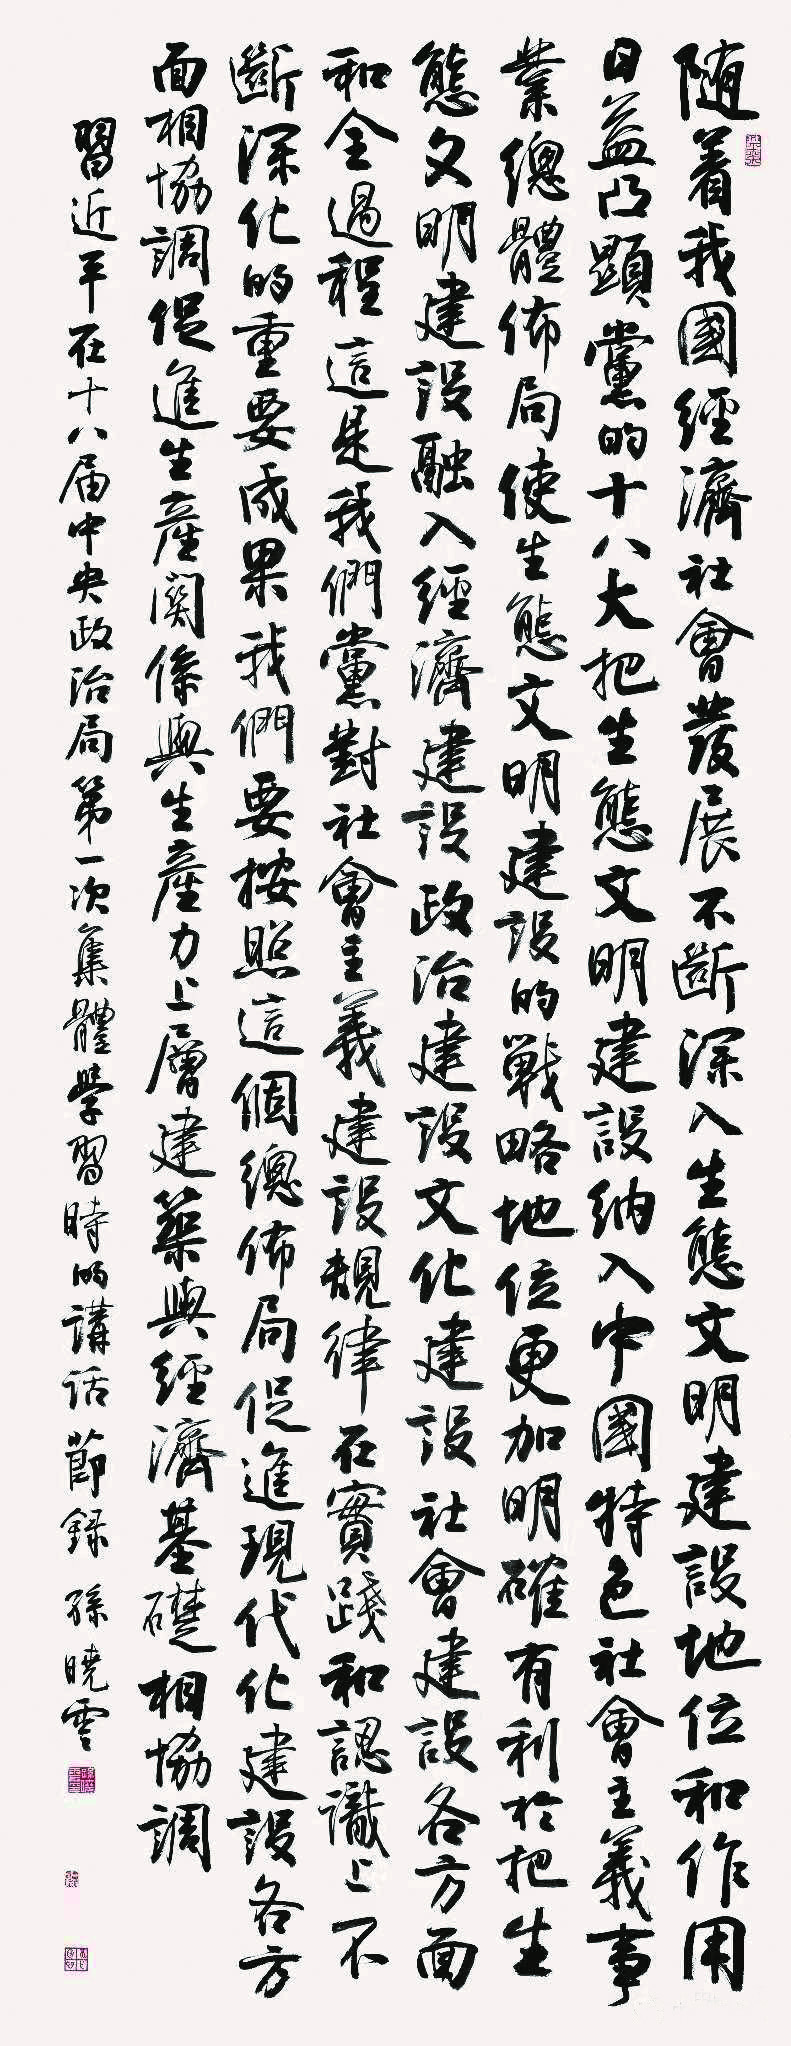 随着我國經濟社會發展不斷深入生態文明建設地位和作用
日益凸顯黨的十八大把生態文明建設納入中國特色社會主義事
業總體佈局使生態文明建設的戰略地位更加明確有利於把生
態文明建設融入經濟建設政治建設文化建設社會建設各方面
和全過程這是我們黨對社會主義建設規律在實踐和認識上不
斷深化的重要成果我們要按照這個總佈局促進現代化建設各方
面相協調促進生產關係與生產力上層建築與經濟基礎相協調
習近平在十八届中央政治局第一次集體學習時的講話節録孫曉雲